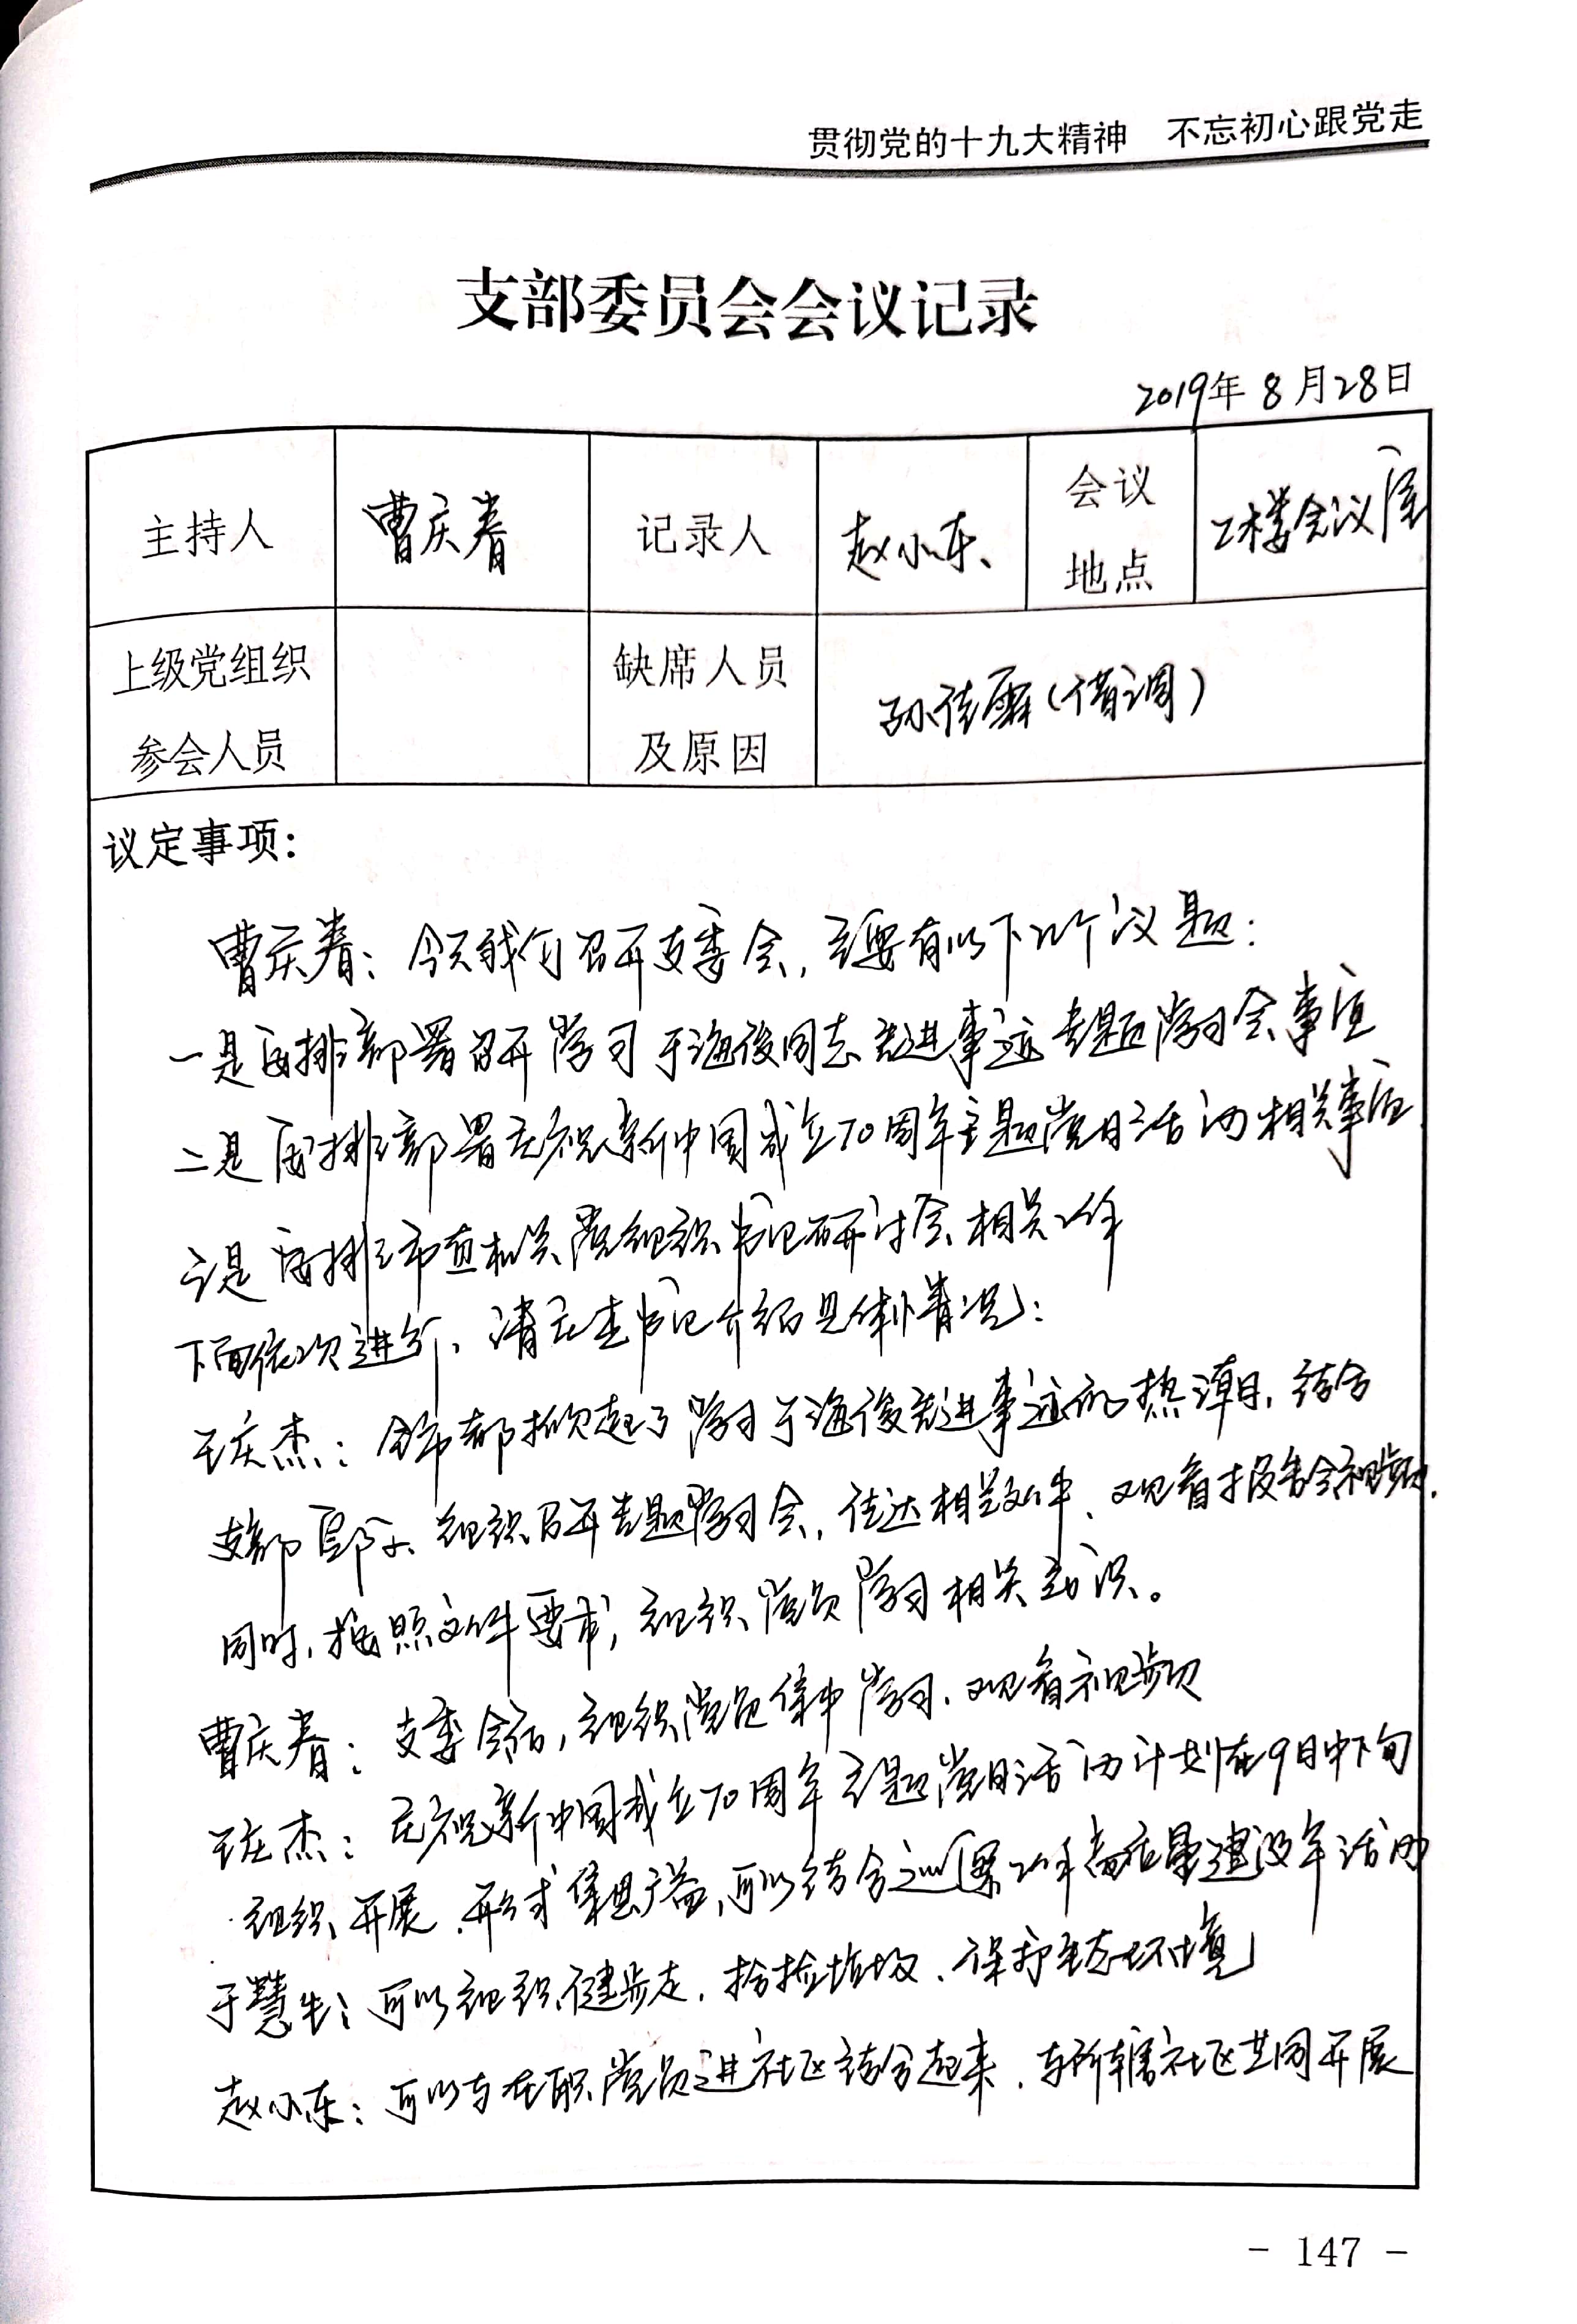 贯彻党的十九大精神 不忘初心跟党走
支部委员会会议记录
2019年8月28日
主持人 曹庆春 记录人 赵小东 会议地点 2楼会议室
上级党组织参会人员 缺席人员及原因 孙佳霖(借调)
议定事项:
曹庆春:今天我们召开支委会,主要有以下几个议题:
一是安排部署召开学习于海俊同志先进事迹专题学习会事宜
二是安排部署庆祝新中国成立70周年主题党日活动相关事宜
三是安排市直机关党组织书记研讨会相关工作
下面依次进行,请庆杰书记介绍具体情况:
王庆杰:全市都掀起了学习于海俊先进事迹的热潮,结合
支部实际,组织召开专题学习会,传达相关文件、观看报告会视频,
同时,按照文件要求,组织党员学习相关知识。
曹庆春:支委会后,组织党员集中学习、观看视频
王庆杰:庆祝新中国成立70周年主题党日活动计划在9月中下旬
组织开展,形式集思广益,可以结合巡察工作高质量建设年活动
于慧生:可以组织健步走,捡拾垃圾、保护生态环境
赵小东:可以与在职党员进社区结合起来,与所辖社区共同开展
- 147 -